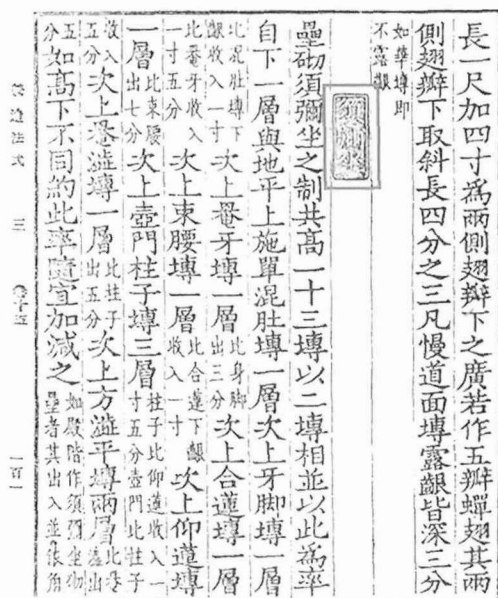 長一尺加四寸爲兩側翅瓣下之廣若作五瓣蟬翅其兩
側翅瓣下取斜長四分之三凡慢道面塼露齦皆深三分
如華塼即
不露齦
須彌坐
壘砌須彌坐之制共高一十三塼以二塼相並以此爲率
自下一層與地平上施單混肚塼一層次上牙脚塼一層
比混肚塼下齦收入一寸次上罨牙塼一層出三分次上合蓮塼一層
比罨牙收入一寸五分次上束腰塼一層比合蓮下齦收入一寸次上仰蓮塼
一層比束腰出七分次上壼門柱子塼三層柱子比仰蓮收入一寸五分壼門比柱子
收入五分次上罨澁塼一層比柱子出五分次上方澁平塼兩層比罨澁出
五分如高下不同約此率隨宜加減之如殿階作須彌坐砌壘者其出入並依角
法式 三 卷十五 一百一